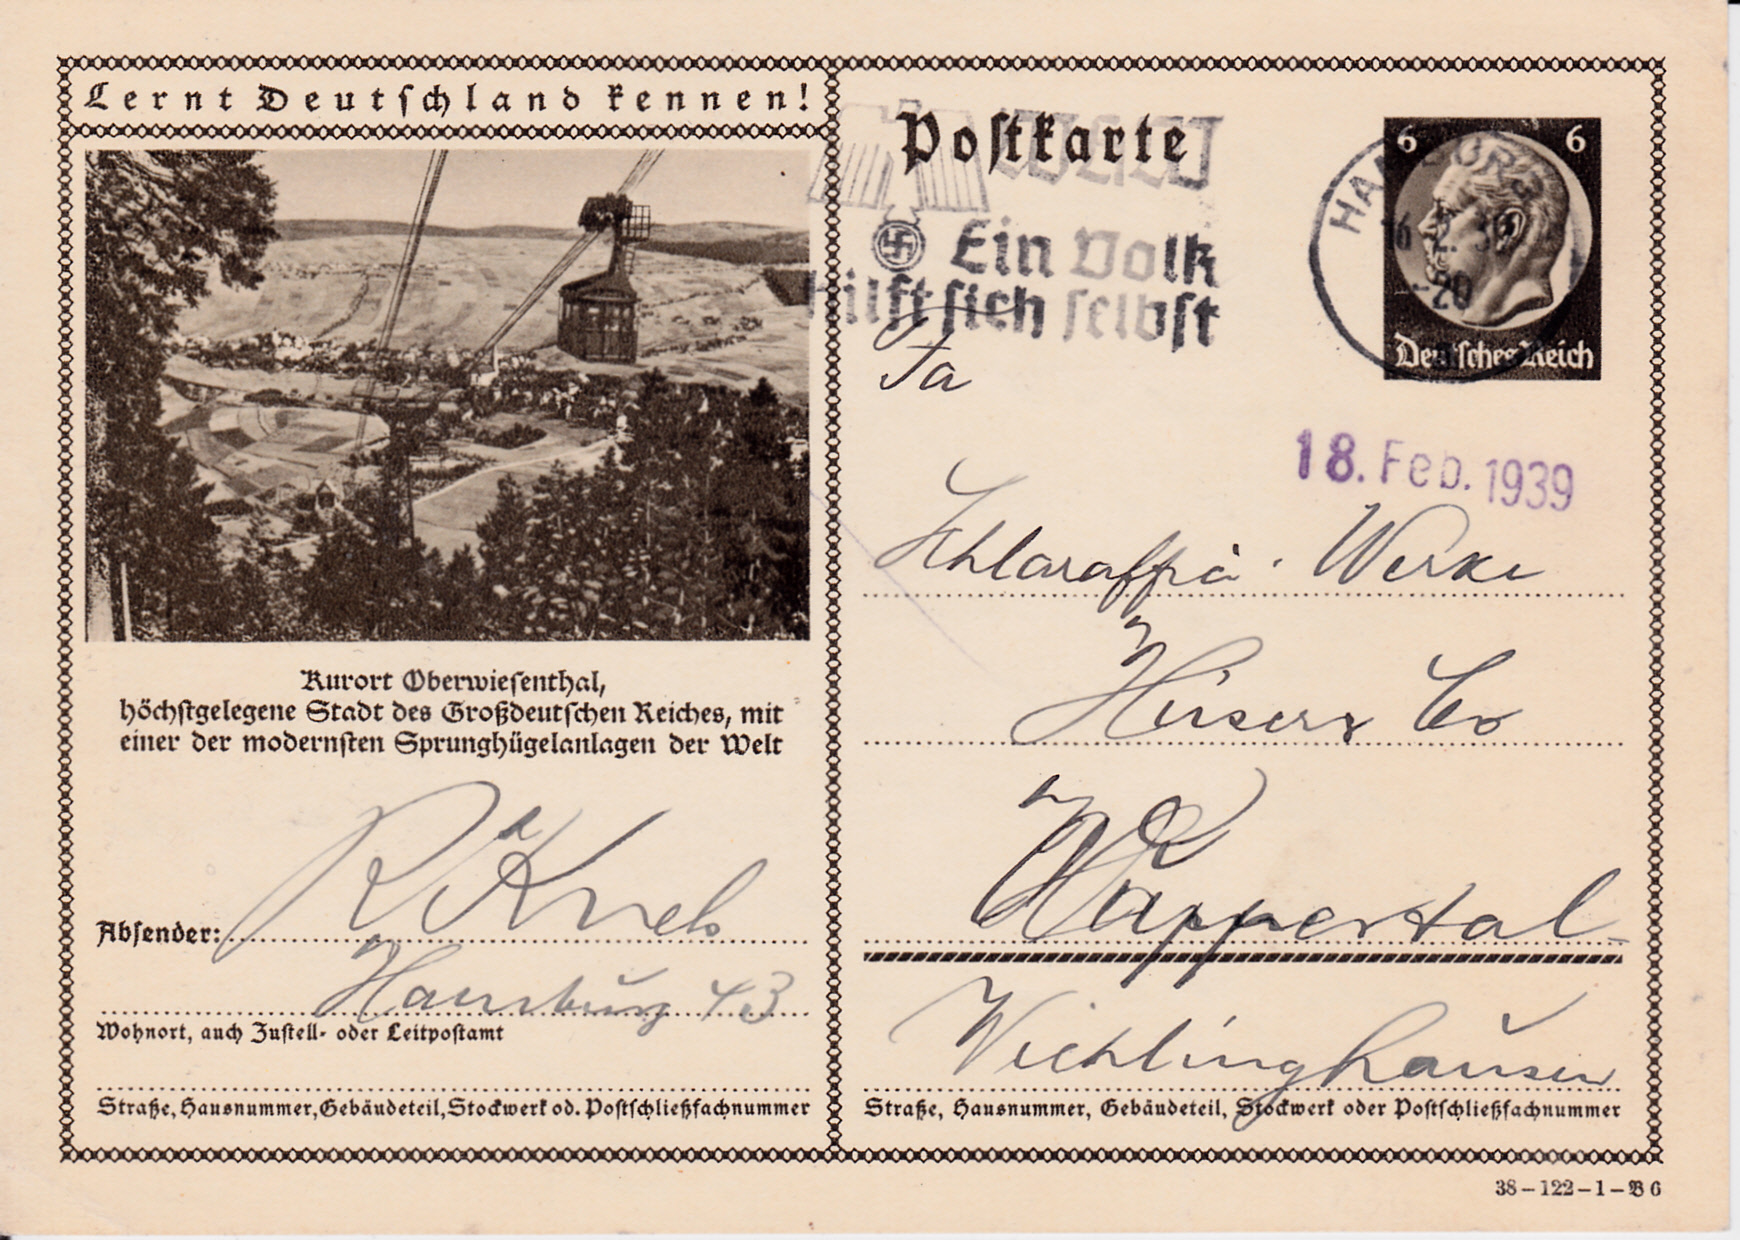 Lernt Deutschland kennen!
Kurort Oberwiesenthal,
höchstgelegene Stadt des Großdeutschen Reiches, mit
einer der modernsten Sprunghügelanlagen der Welt
Absender:
Hamburg 43
Wohnort, auch Zustell- oder Leitpostamt
Straße, Hausnummer, Gebäudeteil, Stockwerk od. Postschließfachnummer
Postkarte
WHW
Ein Volk
hilft sich selbst
HAMBURG
2.39
-20
6 6
Deutsches Reich
18. Feb. 1939
Fa
Schlaraffia-Werke
Co
Wuppertal
Wichlinghausen
Straße, Hausnummer, Gebäudeteil, Stockwerk oder Postschließfachnummer
38-122-1-B6